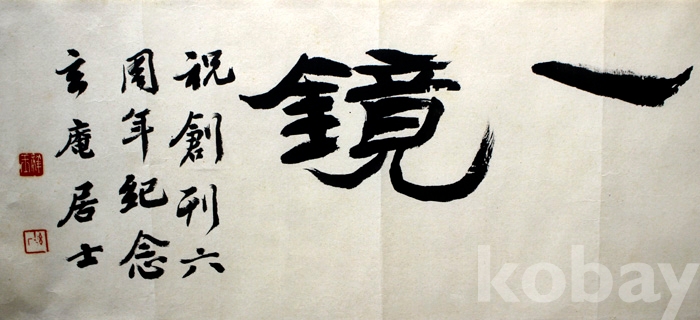 一鏡
祝創刊六
周年紀念
玄庵居士
kobay